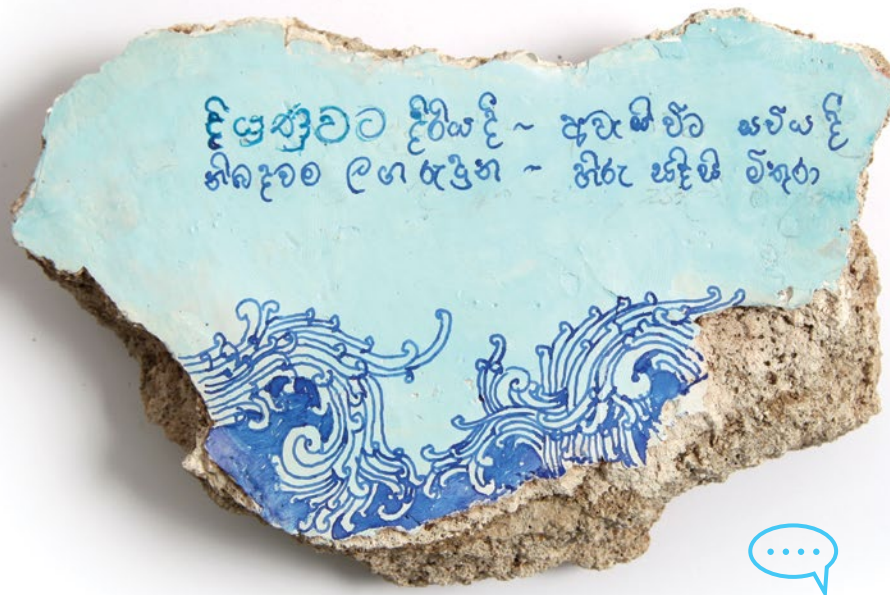 දියුණුවට දිරිය දී ~ අවැසි විට සවිය දී
නිබදවම ලග රැදුන ~ හිරු සදිසි මිතුරා